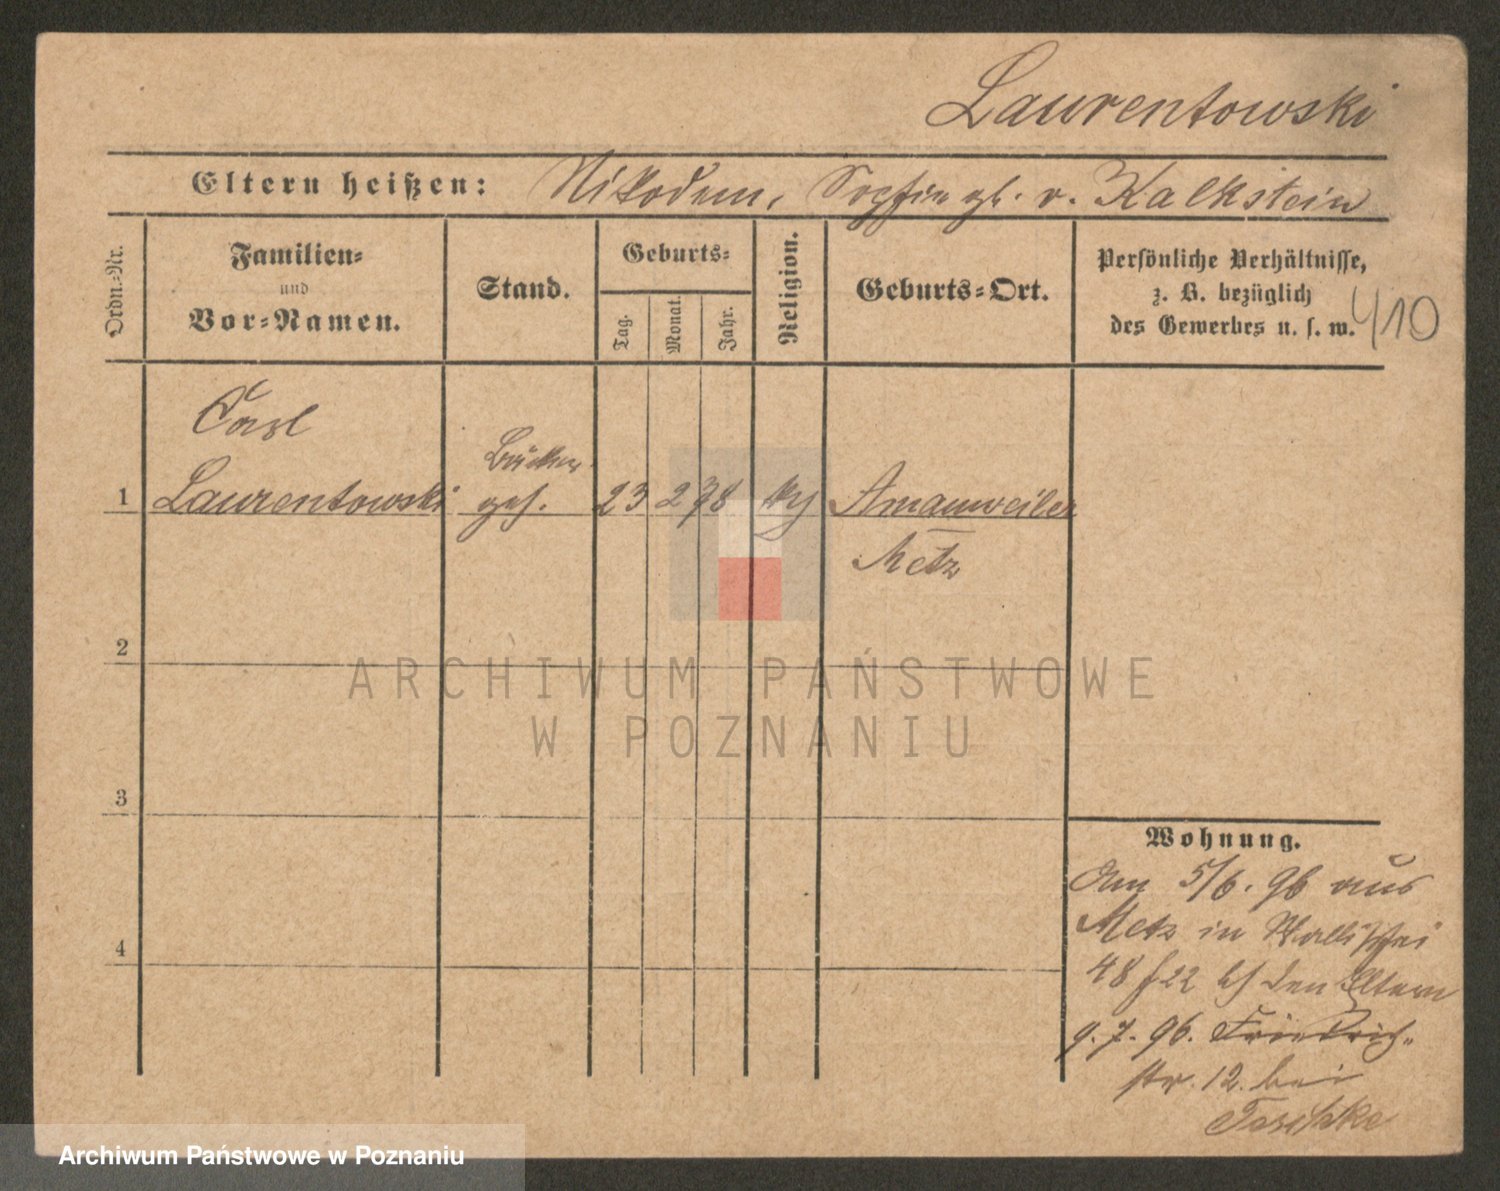 Laurentowski
Eltern heißen: Nikodem, Sophie gb. v. Kalkstein
Ordn.-Nr.
Familien-
und
Vor-Namen.
Stand.
Geburts-
Tag.
Monat.
Jahr.
Religion.
Geburts-Ort.
Persönliche Verhältnisse,
z. B. bezüglich
des Gewerbes u. s. w.
410
Carl
1 Laurentowski
Bäcker
geh.
23 2 78
Amanweiler
Metz
2
3
4
Wohnung.
Am 5/6. 96 aus
Metz in Wallischei
48 f 22 bei den Eltern
9. 7. 96. Friedrich-
str. 12. bei
Taschke
ARCHIWUM PAŃSTWOWE
W POZNANIU
Archiwum Państwowe w Poznaniu